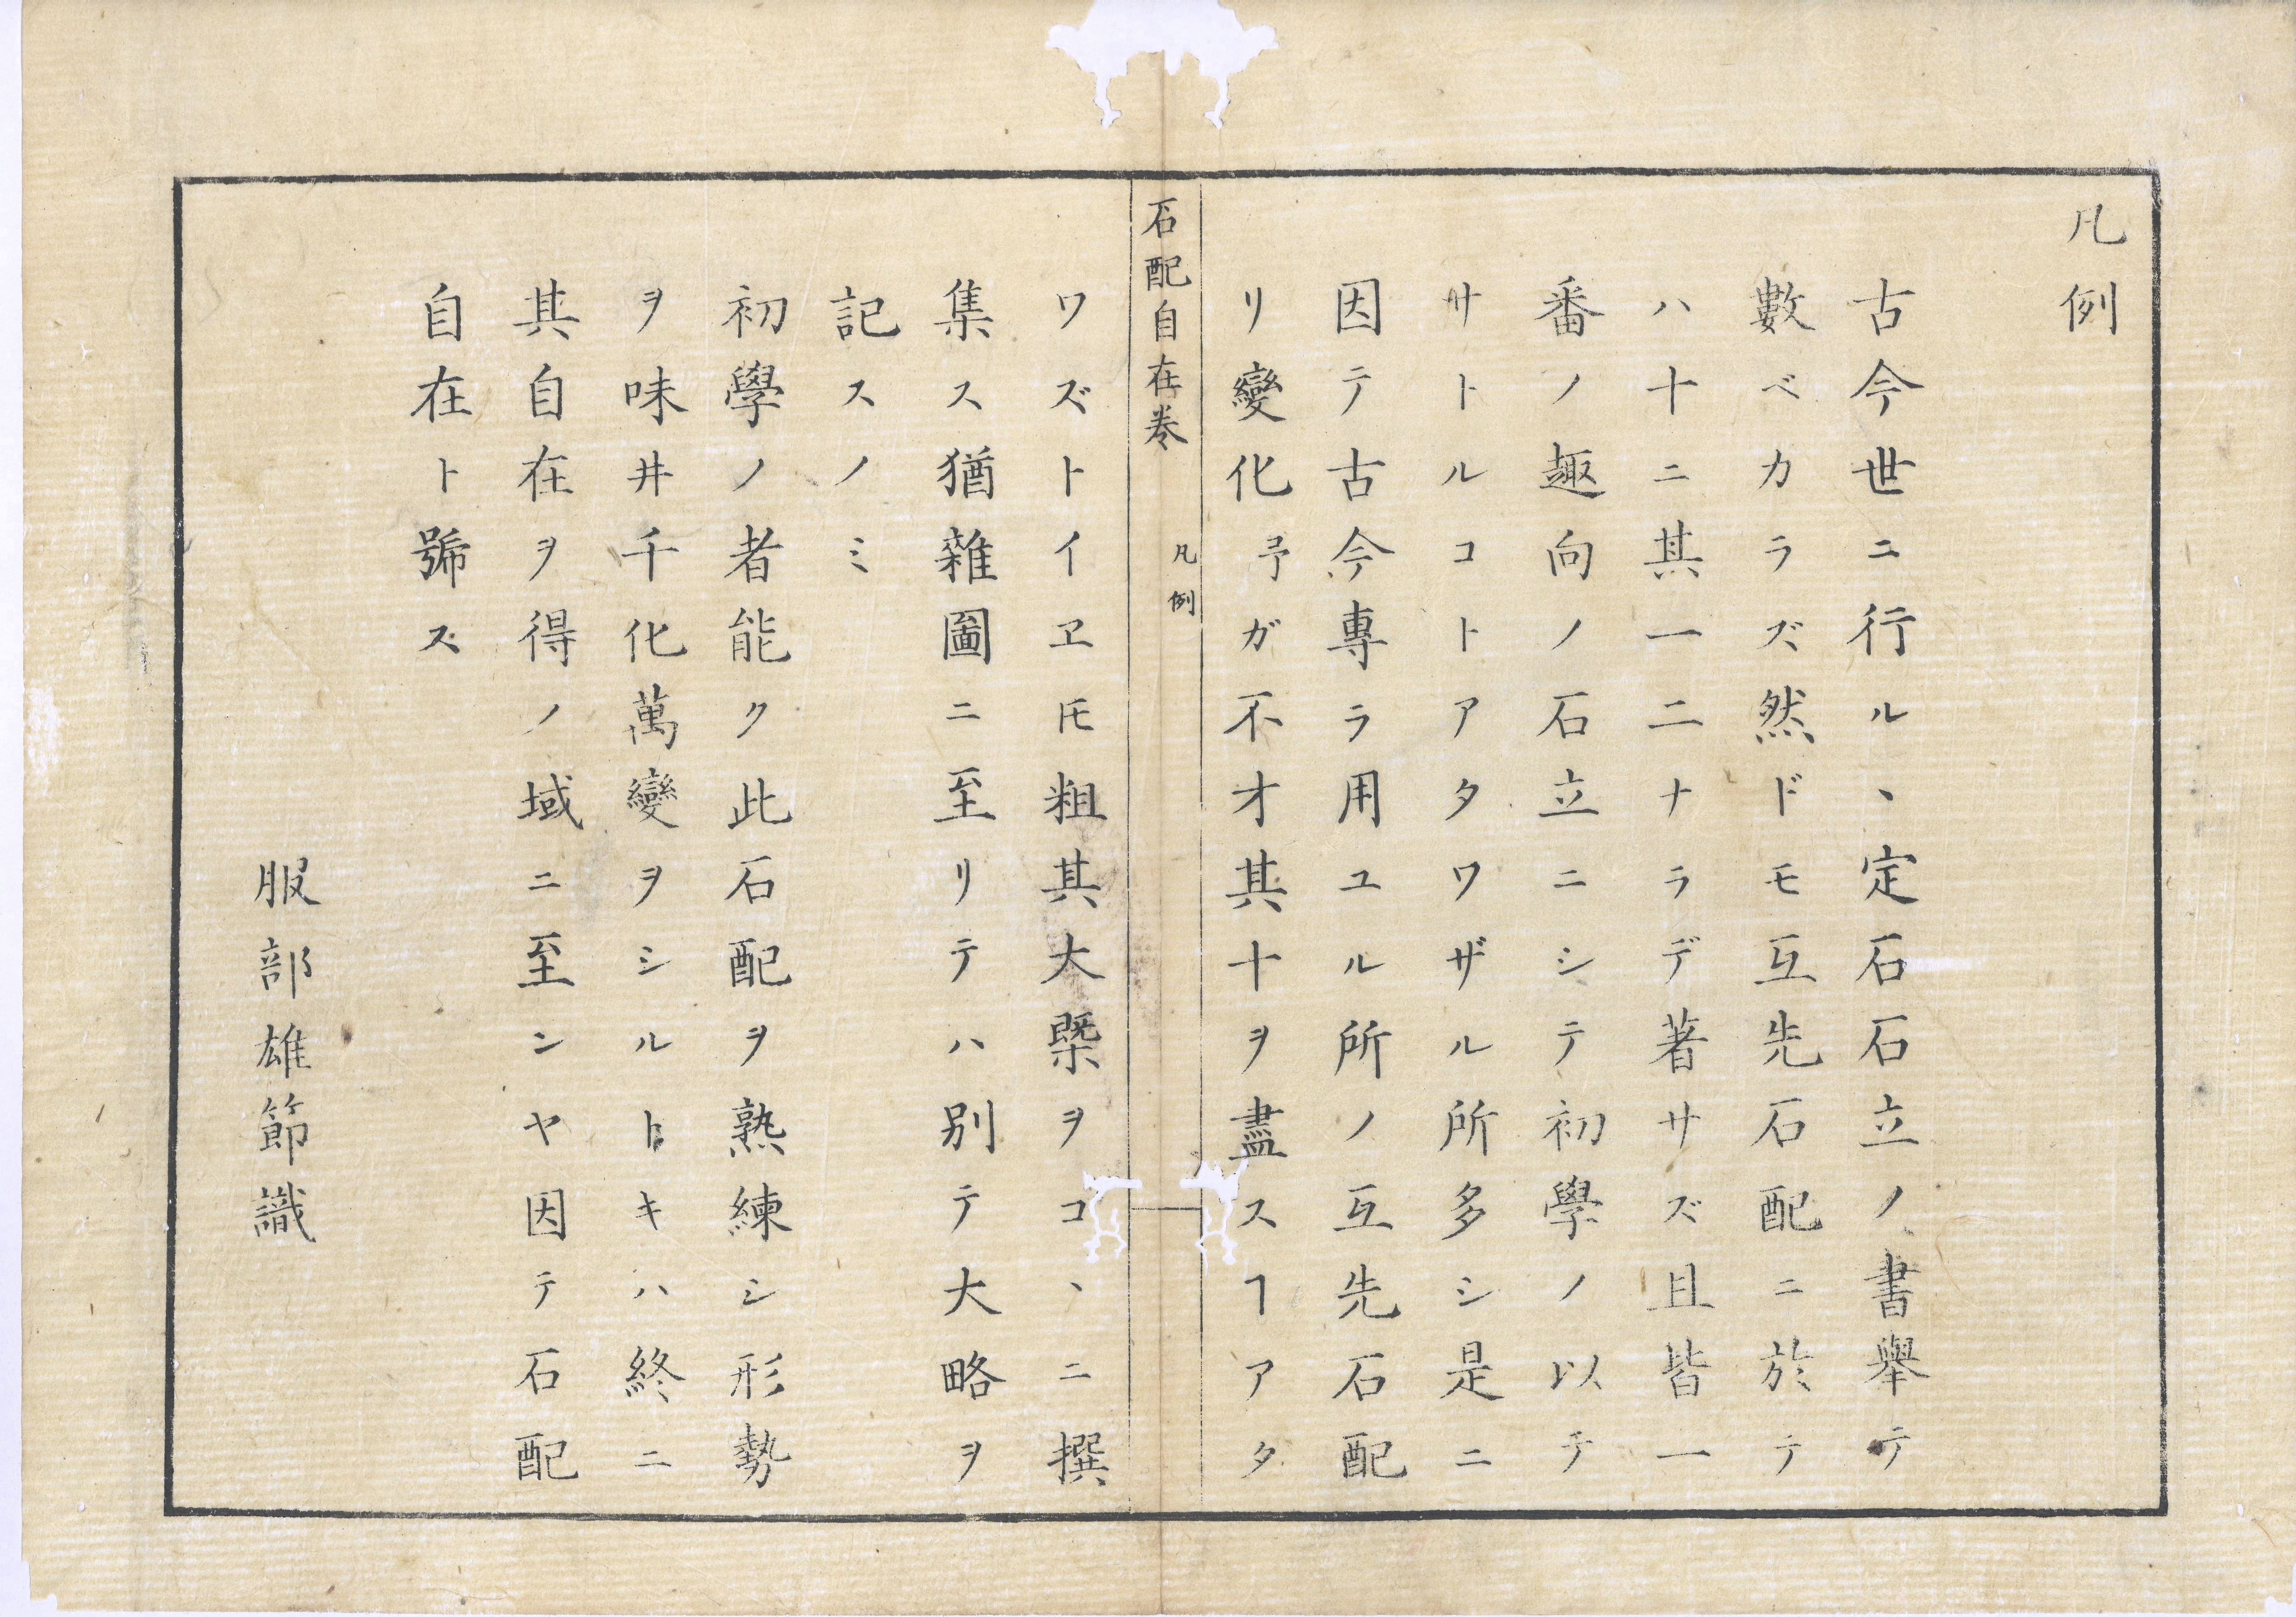 凡例
古今世ニ行ル、定石石立ノ書舉テ
數ベカラズ然ドモ互先石配ニ於テ
ハ十ニ其一二ナラデ著サズ且皆一
番ノ趣向ノ石立ニシテ初學ノ以テ
サトルコトアタワザル所多シ是ニ
因テ古今專ラ用ユル所ノ互先石配
リ變化予ガ不才其十ヲ盡スヿアタ
石配自在卷 凡例
ワズトイヱ𪜈粗其大槩ヲコヽニ撰
集ス猶雜圖ニ至リテハ別テ大略ヲ
記スノミ
初學ノ者能ク此石配ヲ熟練シ形勢
ヲ味井千化萬變ヲシルトキハ終ニ
其自在ヲ得ノ域ニ至ンヤ因テ石配
自在ト號ズ
服部雄節識